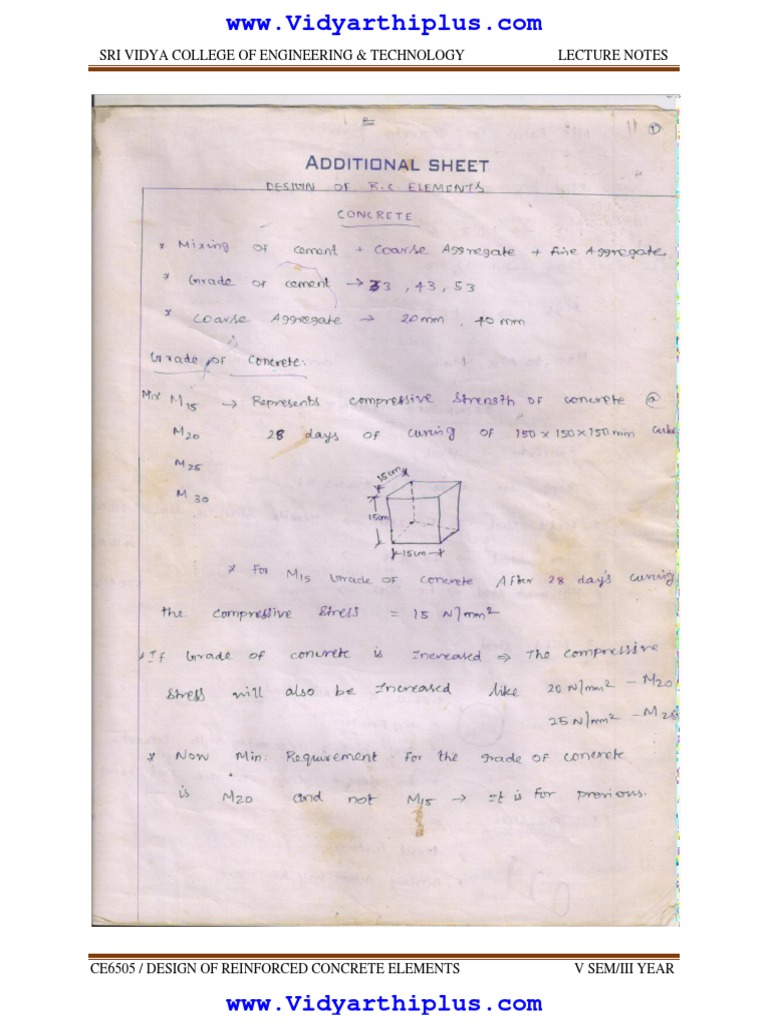 www.Vidyarthiplus.com
SRI VIDYA COLLEGE OF ENGINEERING & TECHNOLOGY LECTURE NOTES
11 ①
ADDITIONAL SHEET
DESIGN OF R.C ELEMENTS
CONCRETE
* Mixing of cement + Coarse Aggregate + fine Aggregate
* Grade of cement → 33, 43, 53
* Coarse Aggregate → 20mm, 40mm
Grade of Concrete:
Mix M15 → Represents compressive strength of concrete @
M20 28 days of curing of 150 x 150 x 150mm cube
M25
M30
15cm
15cm
15cm
* For M15 Grade of concrete After 28 day's curing
the compressive stress = 15 N/mm2
* If Grade of concrete is Increased → The compressive
stress will also be Increased like 20 N/mm2 - M20
25 N/mm2 - M25
* Now Min. Requirement for the grade of concrete
is M20 and not M15 → It is for previous.
CE6505 / DESIGN OF REINFORCED CONCRETE ELEMENTS V SEM/III YEAR
www.Vidyarthiplus.com